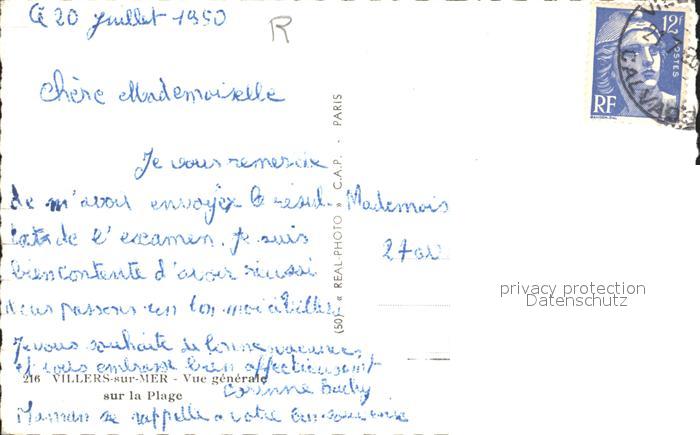 Le 20 juillet 1950
R
12F
POSTES
RF
CALVADOS
Chère Mademoiselle
Je vous remercie
de m'avoir envoyez le résul-
tat de l'examen. Je suis
bien contente d'avoir réussi
nous passons un bon moi à Villers
Je vous souhaite de bonne vacances,
et vous embrasse bien affectueusement
Corinne
Maman se rappelle a votre bon souvenir
Mademois
27
(50) « REAL-PHOTO » C.A.P. - PARIS
privacy protection
Datenschutz
216 VILLERS-sur-MER - Vue générale
sur la Plage